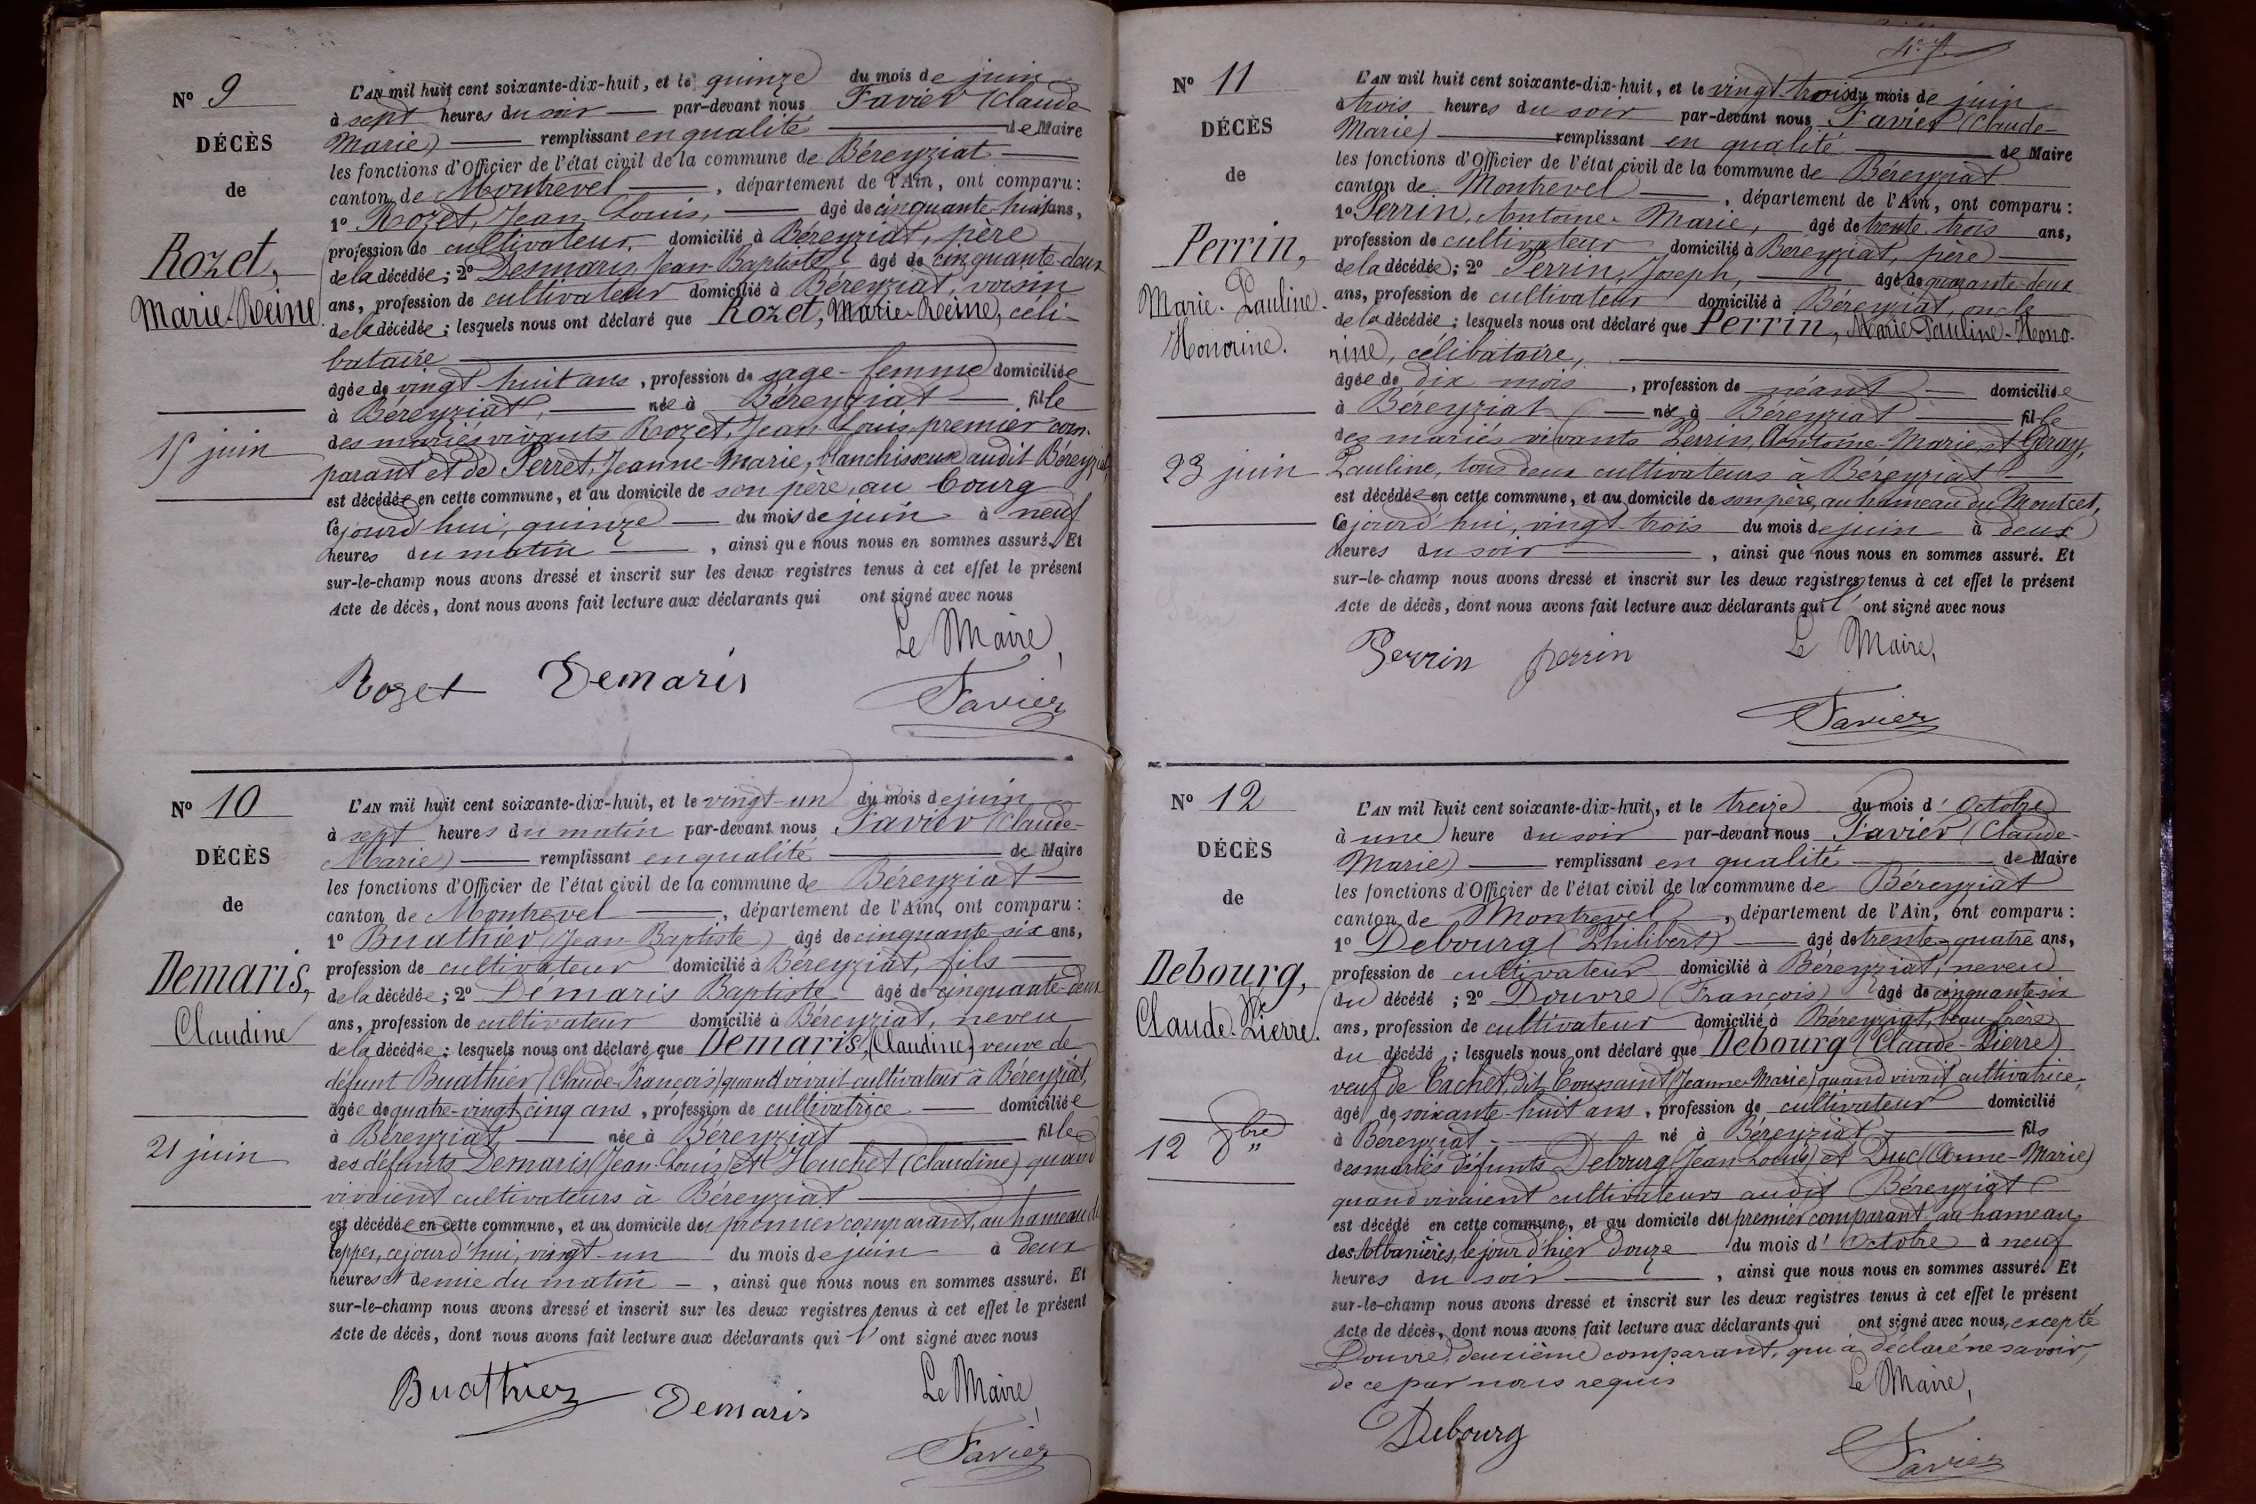 N° 9
DÉCÈS
de
Rozet,
Marie-Reine
15 juin
L'AN mil huit cent soixante-dix-huit, et le quinze du mois de juin
à sept heures du soir par-devant nous Favier (Claude
Marie) remplissant en qualité de Maire
les fonctions d'Officier de l'état civil de la commune de Béreyziat
canton de Montrevel, département de l'Ain, ont comparu:
1° Rozet, Jean Louis, âgé de cinquante-huit ans,
profession de cultivateur, domicilié à Béreyziat, père
de la décédée; 2° Desmaris, Jean-Baptiste, âgé de cinquante-deux
ans, profession de cultivateur domicilié à Béreyziat, voisin
de la décédée; lesquels nous ont déclaré que Rozet, Marie-Reine, céli-
bataire
âgée de vingt-huit ans, profession de sage-femme domiciliée
à Béreyziat, née à Béreyziat fille
des mariés vivants Rozet, Jean Louis, premier com-
parant et de Perret, Jeanne-Marie, blanchisseuse audit Béreyziat,
est décédée en cette commune, et au domicile de son père, au bourg
Cejourd'hui, quinze du mois de juin à neuf
heures du matin, ainsi que nous nous en sommes assuré. Et
sur-le-champ nous avons dressé et inscrit sur les deux registres tenus à cet effet le présent
Acte de décès, dont nous avons fait lecture aux déclarants qui ont signé avec nous
Le Maire,
Rozet Demaris
Favier
N° 10
DÉCÈS
de
Demaris,
Claudine
21 juin
L'AN mil huit cent soixante-dix-huit, et le vingt-un du mois de juin
à sept heures du matin par-devant nous Favier (Claude-
Marie) remplissant en qualité de Maire
les fonctions d'Officier de l'état civil de la commune de Béreyziat
canton de Montrevel, département de l'Ain, ont comparu:
1° Buathier (Jean-Baptiste) âgé de cinquante-six ans,
profession de cultivateur domicilié à Béreyziat, fils
de la décédée; 2° Démaris Baptiste âgé de cinquante-deux
ans, profession de cultivateur domicilié à Béreyziat, neveu
de la décédée; lesquels nous ont déclaré que Demaris, (Claudine) veuve de
défunt Buathier (Claude-François) quand vivait cultivateur à Béreyziat,
âgée de quatre-vingt cinq ans, profession de cultivatrice domiciliée
à Béreyziat, née à Béreyziat fille
des défunts Demaris (Jean-Louis) et Huchet (Claudine) quand
vivaient cultivateurs à Béreyziat
est décédée en cette commune, et au domicile du premier comparant, au hameau de
cejourd'hui, vingt-un du mois de juin à deux
heures et demie du matin, ainsi que nous nous en sommes assuré. Et
sur-le-champ nous avons dressé et inscrit sur les deux registres tenus à cet effet le présent
Acte de décès, dont nous avons fait lecture aux déclarants qui l'ont signé avec nous
Le Maire,
Buathier Demaris
Favier
N° 11
DÉCÈS
de
Perrin,
Marie-Pauline-
Honorine.
23 juin
L'AN mil huit cent soixante-dix-huit, et le vingt-trois du mois de juin
à trois heures du soir par-devant nous Favier (Claude-
Marie) remplissant en qualité de Maire
les fonctions d'Officier de l'état civil de la commune de Béreyziat
canton de Montrevel, département de l'Ain, ont comparu:
1° Perrin, Antoine-Marie, âgé de trente-trois ans,
profession de cultivateur domicilié à Béreyziat, père
de la décédée; 2° Perrin, Joseph, âgé de quarante-deux
ans, profession de cultivateur domicilié à Béreyziat, oncle
de la décédée; lesquels nous ont déclaré que Perrin, Marie-Pauline-Hono-
rine, célibataire,
âgée de dix mois, profession de néant domiciliée
à Béreyziat née à Béreyziat fille
des mariés vivants Perrin, Antoine-Marie, et Géray,
Pauline, tous deux cultivateurs à Béreyziat
est décédée en cette commune, et au domicile de son père, au hameau du Montcet,
Cejourd'hui, vingt-trois du mois de juin à deux
heures du soir, ainsi que nous nous en sommes assuré. Et
sur-le-champ nous avons dressé et inscrit sur les deux registres tenus à cet effet le présent
Acte de décès, dont nous avons fait lecture aux déclarants qui l'ont signé avec nous
Le Maire,
Perrin perrin
Favier
N° 12
DÉCÈS
de
Debourg,
Claude-Pierre.
12 8bre
L'AN mil huit cent soixante-dix-huit, et le treize du mois d'Octobre
à une heure du soir par-devant nous Favier (Claude-
Marie) remplissant en qualité de Maire
les fonctions d'Officier de l'état civil de la commune de Béreyziat
canton de Montrevel, département de l'Ain, ont comparu:
1° Debourg (Philibert) âgé de trente-quatre ans,
profession de cultivateur domicilié à Béreyziat, neveu
du décédé; 2° Douvre (François) âgé de cinquante-six
ans, profession de cultivateur domicilié à Béreyziat, beau-frère
du décédé; lesquels nous ont déclaré que Debourg (Claude-Pierre)
veuf de Cachet, dit Toussaint (Jeanne-Marie) quand vivait cultivatrice,
âgé de soixante-huit ans, profession de cultivateur domicilié
à Béreyziat né à Béreyziat fils
des mariés défunts Debourg (Jean Louis) et Duc (Anne-Marie)
quand vivaient cultivateurs audit Béreyziat
est décédé en cette commune, et au domicile du premier comparant au hameau
des le jour d'hier douze du mois d'Octobre à neuf
heures du soir, ainsi que nous nous en sommes assuré. Et
sur-le-champ nous avons dressé et inscrit sur les deux registres tenus à cet effet le présent
Acte de décès, dont nous avons fait lecture aux déclarants qui ont signé avec nous, excepté
Douvre, deuxième comparant, qui a déclaré ne savoir,
de ce par nous requis
Le Maire,
Debourg
Favier